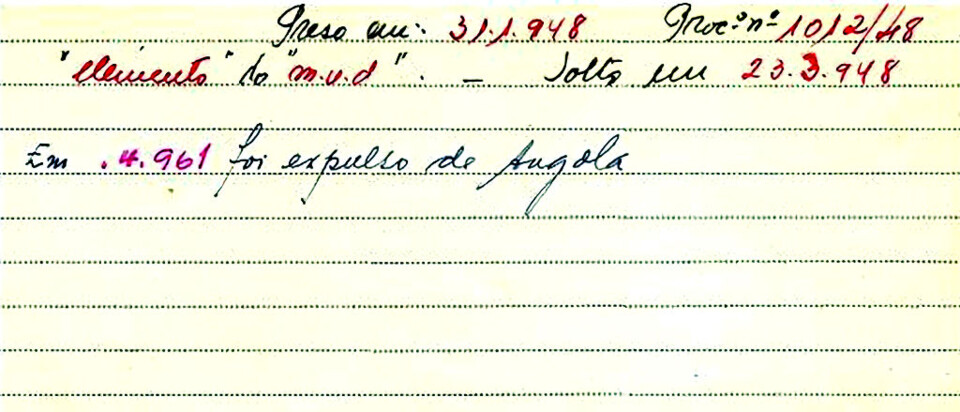 Preso em: 31.1.948 Proc.º nº 1012/48
"elemento" do "m.u.d". — Solto em 23.3.948
Em .4.961 foi expulso de Angola